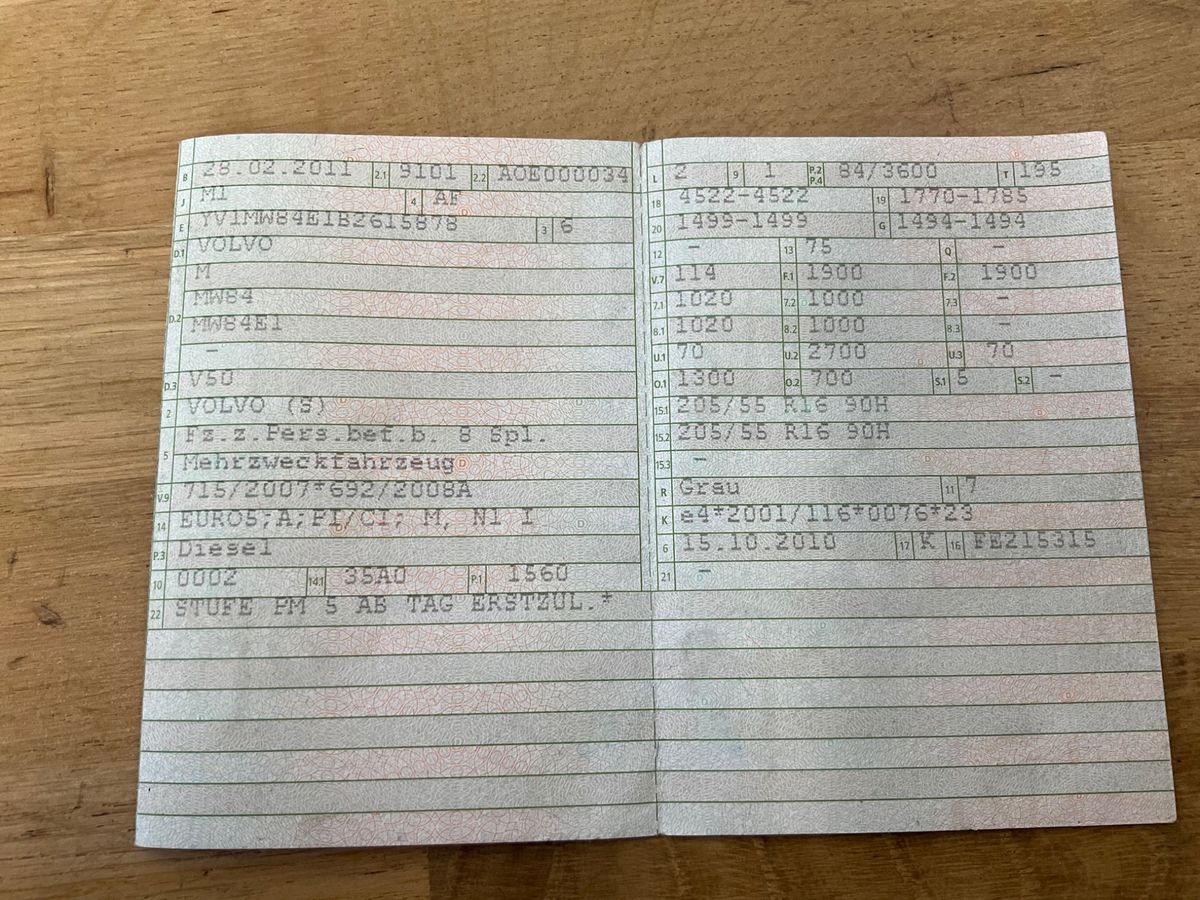 B 28.02.2011 2.1 9101 2.2 AOE000034
J M1 4 AF
E YV1MW84E1B2615878 3 6
D.1 VOLVO
M
D.2 MW84
MW84E1
-
D.3 V50
2 VOLVO (S)
5 Fz.z.Pers.bef.b. 8 Spl.
Mehrzweckfahrzeug
V.9 715/2007*692/2008A
14 EURO5;A;PI/CI; M, N1 I
P.3 Diesel
10 0002 14.1 35A0 P.1 1560
22 STUFE PM 5 AB TAG ERSTZUL.*
L 2 9 1 P.2 P.4 84/3600 T 195
18 4522-4522 19 1770-1785
20 1499-1499 G 1494-1494
12 - 13 75 Q -
V.7 114 F.1 1900 F.2 1900
7.1 1020 7.2 1000 7.3 -
8.1 1020 8.2 1000 8.3 -
U.1 70 U.2 2700 U.3 70
O.1 1300 O.2 700 S.1 5 S.2 -
15.1 205/55 R16 90H
15.2 205/55 R16 90H
15.3 -
R Grau 11 7
K e4*2001/116*0076*23
6 15.10.2010 17 K 16 FE215315
21 -